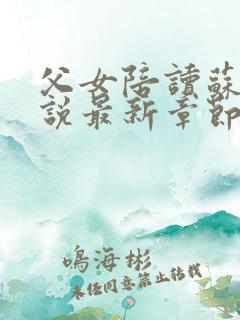 父女陪讀蘇
說最新章節
鳴海彬
未任同意禁止转载